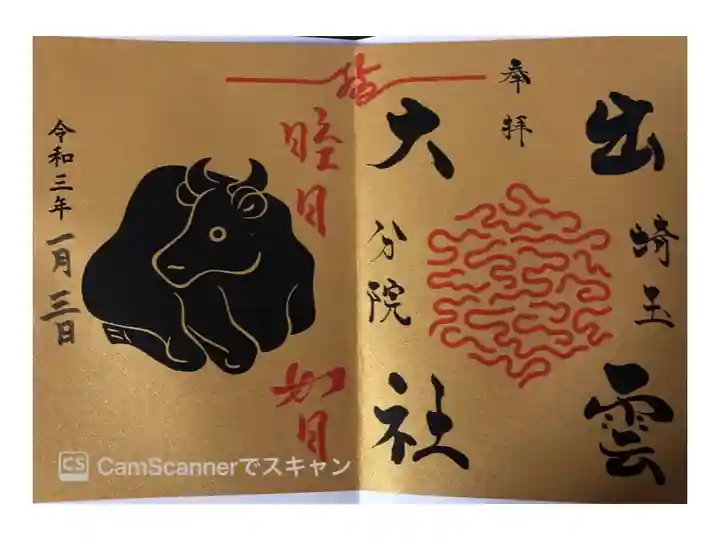 奉拝
出雲
埼玉
大社
分院
睦月
如月
令和三年
一月三日
CS CamScannerでスキャン